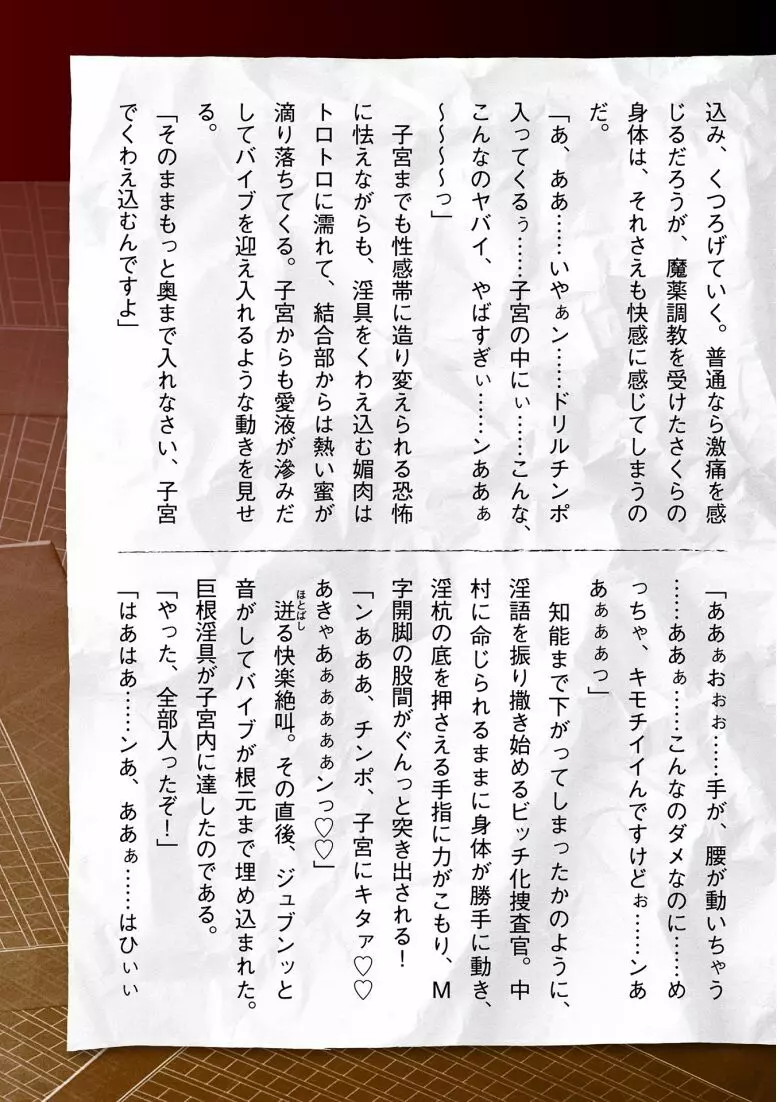 込み、くつろげていく。普通なら激痛を感
じるだろうが、魔薬調教を受けたさくらの
身体は、それさえも快感に感じてしまうの
だ。
「あ、ああ……いやぁン……ドリルチンポ
入ってくるぅ……子宮の中にぃ……こんな、
こんなのヤバイ、やばすぎぃ……ンああぁ
～～～～っ」
子宮までも性感帯に造り変えられる恐怖
に怯えながらも、淫具をくわえ込む媚肉は
トロトロに濡れて、結合部からは熱い蜜が
滴り落ちてくる。子宮からも愛液が滲みだ
してバイブを迎え入れるような動きを見せ
る。
「そのままもっと奥まで入れなさい、子宮
でくわえ込むんですよ」
「ああぁおぉぉ……手が、腰が動いちゃう
……ああぁ……こんなのダメなのに……め
っちゃ、キモチイイんですけどぉ……ンあ
あぁぁぁっ」
知能まで下がってしまったかのように、
淫語を振り撒き始めるビッチ化捜査官。中
村に命じられるままに身体が勝手に動き、
淫杭の底を押さえる手指に力がこもり、M
字開脚の股間がぐんっと突き出される！
「ンあああ、チンポ、子宮にキタァ♡♡
あきゃあぁぁぁぁぁンっ♡♡」
迸る快楽絶叫。その直後、ジュブンッと
ほとばし
音がしてバイブが根元まで埋め込まれた。
巨根淫具が子宮内に達したのである。
「やった、全部入ったぞ！」
「はあはあ……ンあ、ああぁ……はひぃぃ